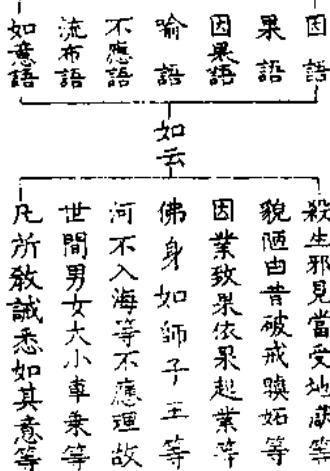 因語
果語
因果語
喻語
不應語
流布語
如意語
如云
殺生邪見當受地獄等
貌陋由昔破戒瞋妬等
因業致果依果起業等
佛身如師子王等
河不入海等不應理故
世間男女大小車乗等
凡所敎誡悉如其意等